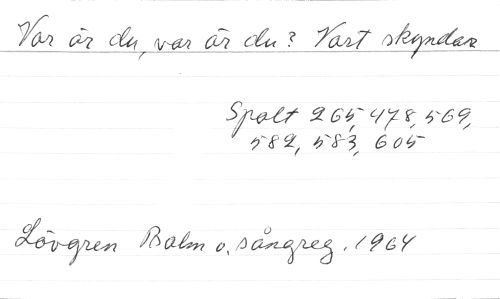 Var är du, var är du? Vart skyndar
Spalt 265, 478, 569,
582, 583, 605
Lövgren Psalm o. sångreg. 1964